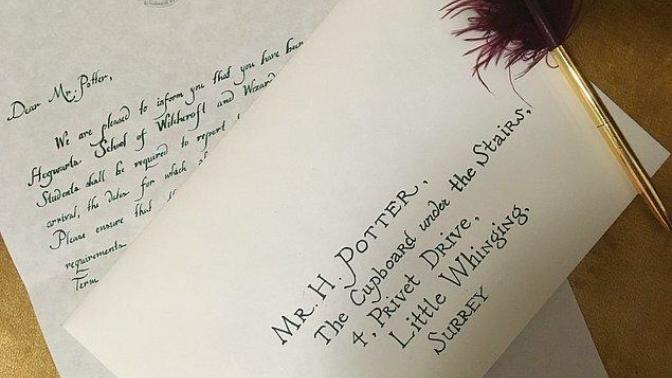 Dear Mr. Potter,
We are pleased to inform you that you have been
Hogwarts School of Witchcraft and Wizard
Students shall be required to report
arrival, the dates for which
Please ensure that
requirements
Term
Mr. H. Potter,
The Cupboard under the Stairs,
4, Privet Drive,
Little Whinging,
Surrey